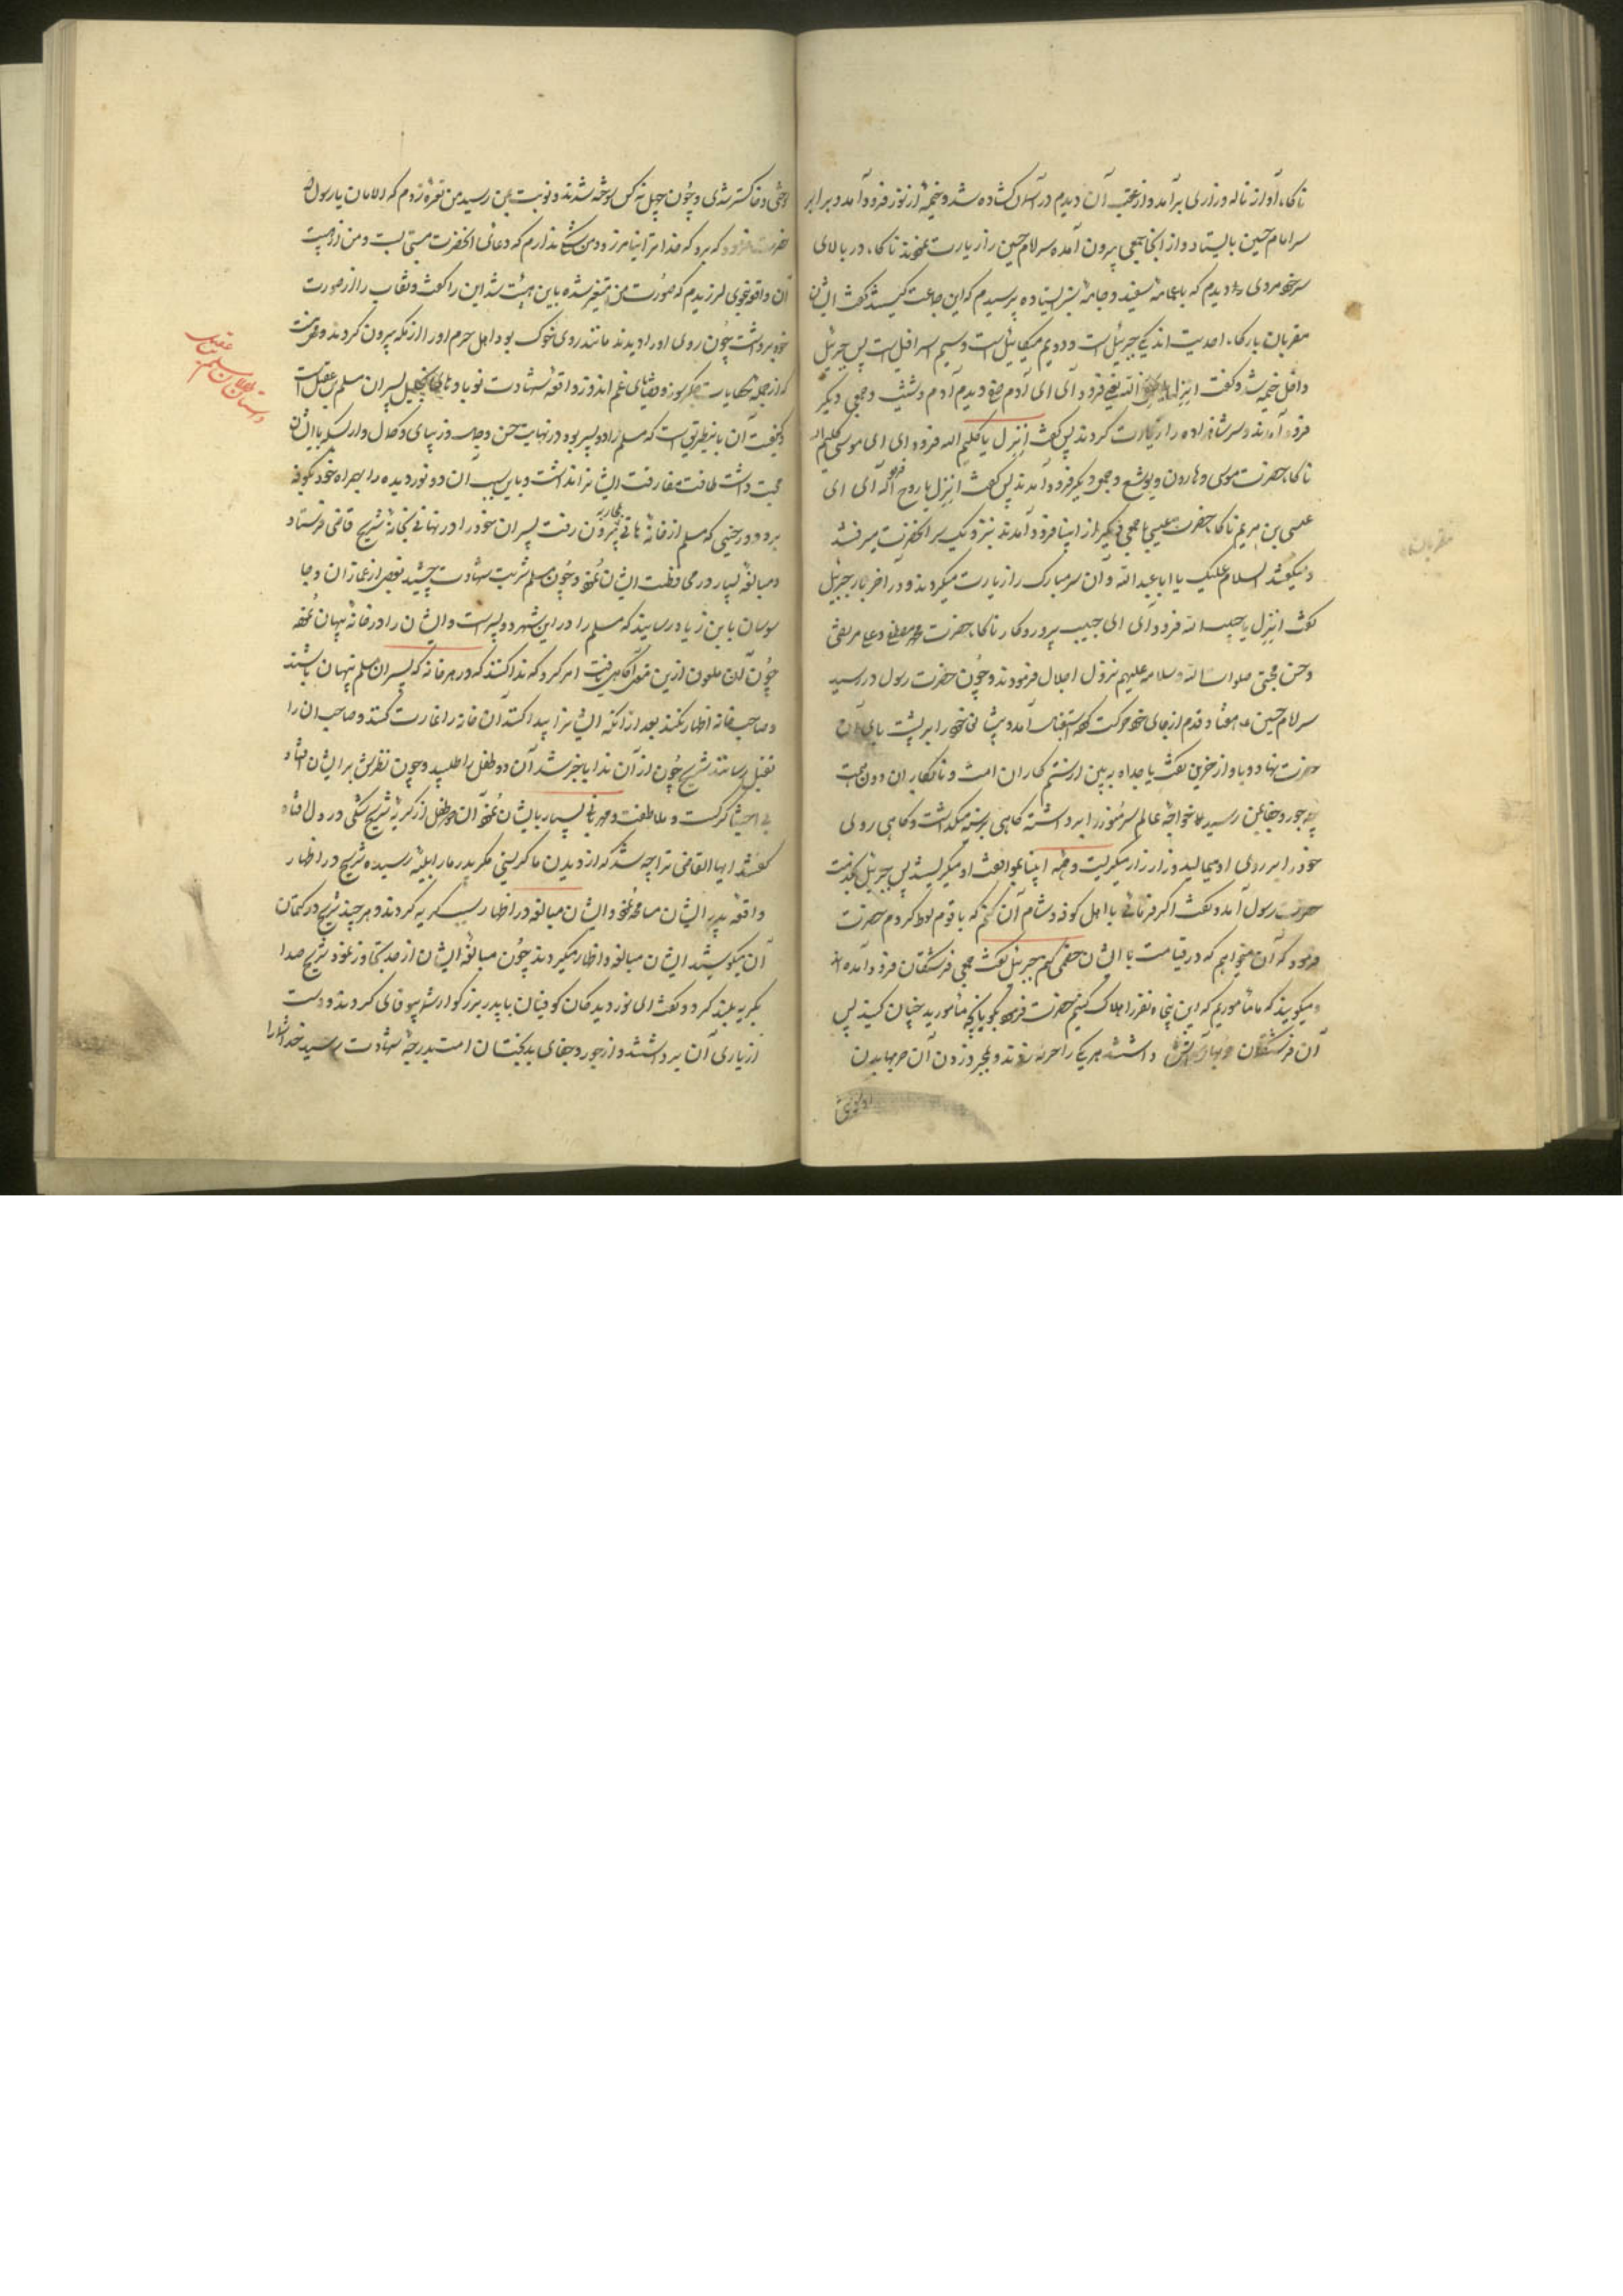 ناکاه آواز ناله وزاری برآمد واز عقب آن دیدم در آسمان کشاده شد و خیمهٔ از نور فرود آمد و برابر
سر امام حسین بایستاد واز انجا جمعی بیرون آمده سر امام حسین را زیارت نمودند ناکاه در بالای
سر خود مردی را دیدم که با عمامهٔ سفید وجامهٔ سبز ایستاده پرسیدم که این جماعت کیستند گفت ایشان
مقربان بارکاه احدیت اند یکی جبرئیل است و دویم میکائیل است وسیم اسرافیل است پس جبرئیل
داخل خیمه شد وگفت انزل یا صفی الله یعنی فرود آی ای آدم صفی دیدم آدم و شیث وجمعی دیگر
فرود آمدند وسر شاهزاده را زیارت کردند پس گفت انزل یا کلیم الله فرود ای ای موسی کلیم الله
ناکاه حضرت موسی وهارون ویوشع وجمعی دیکر فرود آمدند پس گفت انزل یا روح الله فرود آی ای
عیسی بن مریم ناکاه حضرت عیسی با جمعی دیگر از انبیا فرود آمدند بنزدیک سر انحضرت میرفتند
ومیگفتند السلام علیک یا ابا عبد الله وآن سر مبارک را زیارت میکردند ودر آخر کار جبرئیل
گفت انزل یا حبیب الله فرود آی ای حبیب پروردکار ناکاه حضرت محمد مصطفی وعلی مرتضی
وحسن مجتبی صلوات الله وسلامه علیهم نزول اجلال فرمودند وچون حضرت رسول در رسید
سر امام حسین هفتاد قدم از جای خود حرکت کرده استقبال آمد و پیشانی خود را بر پشت پای آن
حضرت نهاد وبآواز حزین گفت یا جداه ببین از ستم کاران امت ونابکاران دون همت
چه جور وجفا بمن رسید خواجهٔ عالم سر منور را برداشته کاهی بر سینه میگذاشت وکاهی روی
خود را بر روی او میمالید وزار زار میگریست وهمه انبیا بموافقت او میگریستند پس جبرئیل بخدمت
حضرت رسول آمد وگفت اگر فرمائی با اهل کوفه وشام آن کنم که با قوم لوط کردم حضرت
فرمود که آن میخواهم که در قیامت با ایشان خصمی کنم جبرئیل گفت جمعی فرشتگان فرود آمده اند
ومیگویند که ما مأموریم که این پنجاه نفر را هلاک کنیم حضرت فرمود بآنچه مأمورید چنان کنید پس
آن فرشتگان حربهای آتش داشتند هر یکی را حربه زدند وبمجرد زدن آن حربها بدن
مقربان
وچون چهل نه کس سوخته شدند ونوبت بمن رسید من نعره زدم که الامان یا رسول الله
حضرت فرمود که برو که خدا ترا نیامرزد ومن شک ندارم که دعای انحضرت مستجابست ومن از هیبت
آن واقعه چون لرزیدم که صورت من متغیر شده باین هیئت شد این را گفت ونقاب را از صورت
خود برداشت چون روی او را دیدند مانند روی خوک بود اهل حرم او را از مکه بیرون کردند
که از جمله حکایات جگرسوز وقضیهای غم اندوز واقعهٔ شهادت نوباوهای پسران مسلم بن عقیل است
وکیفیت آن باینطریق است که مسلم را دو پسر بود در نهایت حسن وجمال وزیبایی وکمال واز بسکه با ایشان
محبت داشت طاقت مفارقت ایشانرا نداشت وباین سبب آن دو نور دیده را بهمراه خود بکوفه
برد ودر حینی که مسلم از خانهٔ هانی بیرون رفت پسران خود را در نهانی بخانهٔ شریح قاضی فرستاد
ومبالغهٔ بسیار در محافظت ایشان نمود وچون مسلم شربت شهادت چشید بعضی از غمازان وجا
سوسان بابن زیاد رسانیدند که مسلم را در این شهر دو پسر است وایشان را در خانه پنهان نموده
چون آن ملعون ازین معنی آگاهی یافت امر کرد که ندا کنند که در هر خانه که پسران مسلم پنهان باشند
وصاحب خانه اظهار نکند بعد از آنکه ایشانرا پیدا کنند آن خانه را غارت کنند وصاحب ان را
بقتل رسانند شریح چون از آن ندا با خبر شد آن دو طفل را طلبید وچون نظرش بر ایشان افتاد
بی اختیار گریست وملاطفت ومهربانی بسیار با ایشان نمود آن دو طفل از گریهٔ شریح شکی در دل افتاد
گفتند ایها القاضی ترا چه شد که از دیدن ما گریستی مگر پدر ما را بلیهٔ رسیده شریح در اظهار
واقعهٔ پدر ایشان مسامحه نمود وایشان مبالغه در اظهار بسیار گریه کردند وهر چند شریح در کتمان
آن میکوشید ایشان مبالغه واظهار میکردند چون مبالغهٔ ایشان از حد تجاوز نمود شریح صدا
بگریه بلند کرد وگفت ای نور دیدگان کوفیان با پدر بزرگوار شما بیوفایی کردند ودست
از یاری آن برداشتند واز جور وجفای بدبختان امت بدرجهٔ شهادت رسید خدا شما را
داستان طفلان مسلم بن عقیل